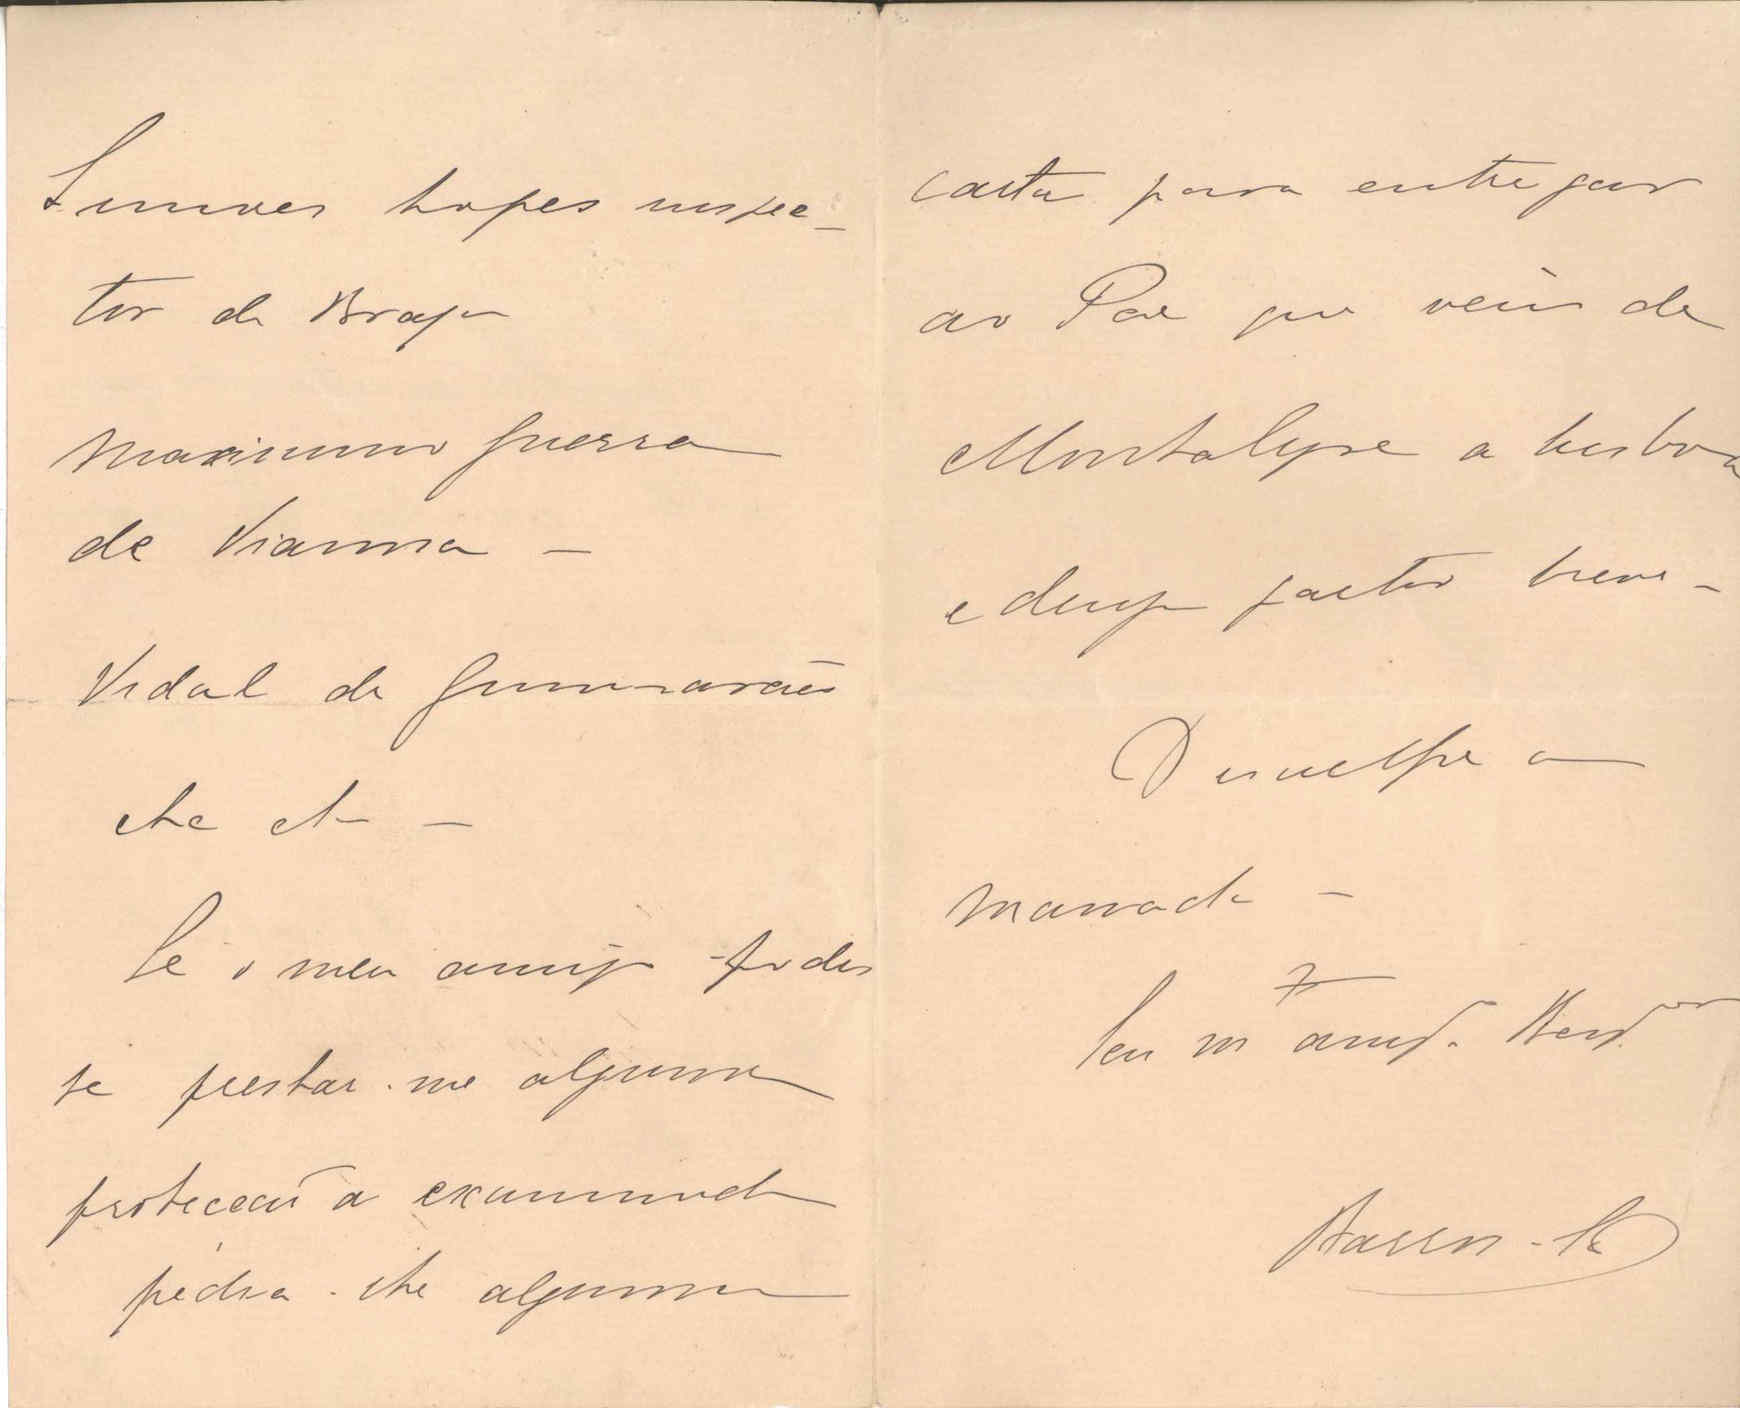 Simões Lopes inspec-
tor de Braga
Maximino Guerra
de Vianna -
Vidal de Guimarães
etc etc -
Se o meu amigo podes
se prestar-me alguma
protecção a examinada
pedia-lhe alguma
carta para entregar
ao Pae que vem de
a Lisboa
e parto breve -
Desculpe a
massada -
Seu mto amº.